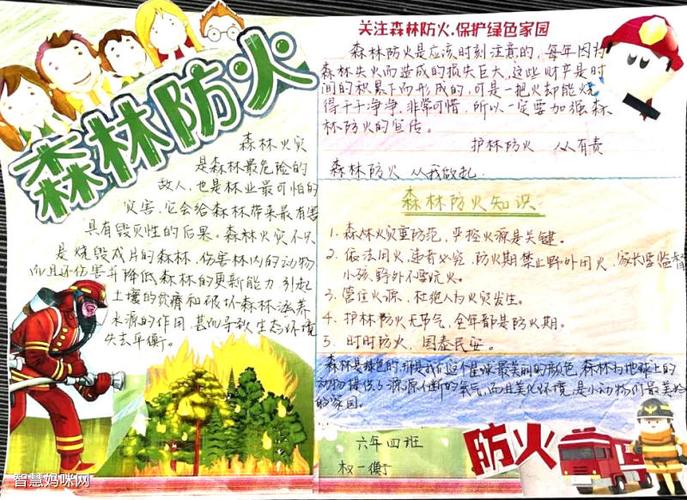 森林防火
森林火灾
是森林最危险的
敌人,也是林业最可怕的
灾害,它会给森林带来最有害
具有毁灭性的后果。森林火灾不只
是烧毁成片的森林,伤害林内的动物
而且还降低森林的更新能力,引起
土壤的贫瘠和破坏森林涵养
水源的作用,甚而导致生态环境
失去平衡。
智慧妈咪网
关注森林防火,保护绿色家园
森林防火是应该时刻注意的,每年因为
森林失火而造成的损失巨大,这些财产是时
间的积累下而形成的,可是一把火却能烧
得干干净净,非常可惜,所以一定要加强森
林防火的宣传。
护林防火 人人有责
森林防火 从我做起
森林防火知识
1. 森林火灾重防范,严控火源是关键。
2. 依法用火,违者必究,防火期禁止野外用火,家长要监督
小孩,野外不要玩火。
3. 管住火源,杜绝人为火灾发生。
4. 护林防火无节气,全年都是防火期。
5. 时时防火,国泰民安。
森林是绿色的,那是我们这个星球最美丽的颜色,森林为地球上的
动物提供了源源不断的氧气,而且美化环境,是小动物们最美好
的家园。
六年四班
权一衡
防火